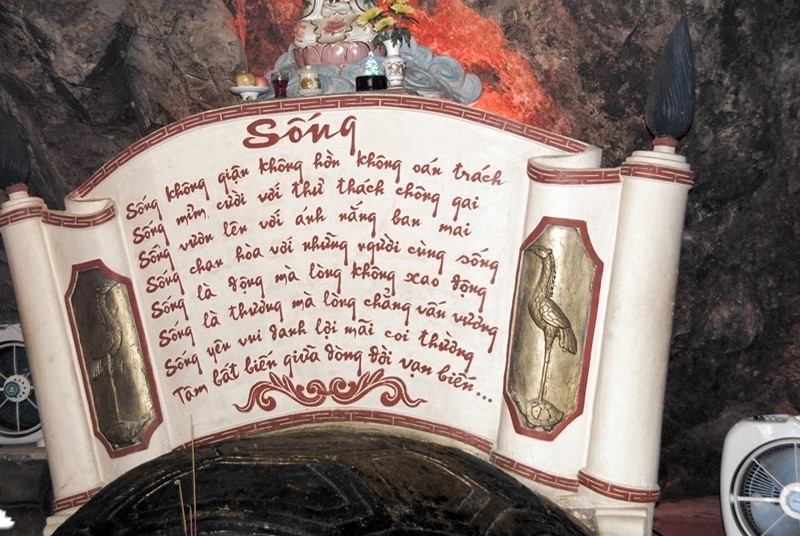 Sống
Sống không giận không hờn không oán trách
Sống mỉm cười với thử thách chông gai
Sống vươn lên với ánh nắng ban mai
Sống chan hòa với những người cùng sống
Sống là động mà lòng không xao động
Sống là thương mà lòng chẳng vấn vương
Sống yên vui danh lợi mãi coi thường
Tâm bất biến giữa dòng đời vạn biến...